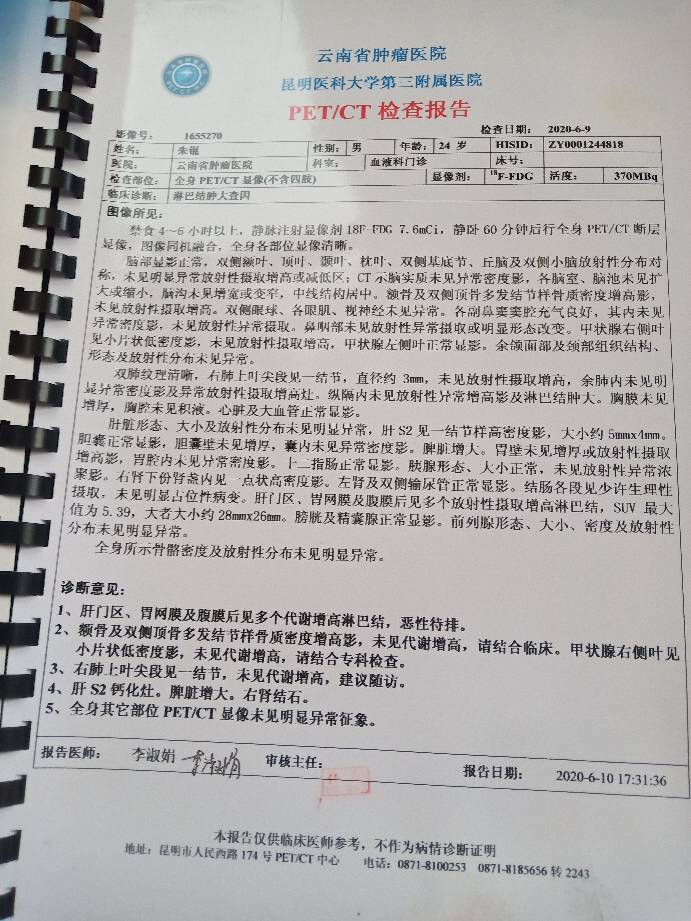 云南省肿瘤医院
昆明医科大学第三附属医院
PET/CT 检查报告
影像号： 1655270 检查日期： 2020-6-9
姓名： 朱锟 性别： 男 年龄： 24 岁 HISID： ZY0001244818
医院： 云南省肿瘤医院 科室： 血液科门诊 床号：
检查部位： 全身 PET/CT 显像(不含四肢) 显像剂： 18F-FDG 活度： 370MBq
临床诊断： 淋巴结肿大查因
图像所见：
禁食 4～6 小时以上，静脉注射显像剂 18F-FDG 7.6mCi，静卧 60 分钟后行全身 PET/CT 断层
显像，图像同机融合，全身各部位显像清晰。
脑部显影正常，双侧额叶、顶叶、颞叶、枕叶、双侧基底节、丘脑及双侧小脑放射性分布对
称，未见明显异常放射性摄取增高或减低区；CT 示脑实质未见异常密度影，各脑室、脑池未见扩
大或缩小，脑沟未见增宽或变窄，中线结构居中。额骨及双侧顶骨多发结节样骨质密度增高影，
未见放射性摄取增高。双侧眼球、各眼肌、视神经未见异常。各副鼻窦窦腔充气良好，其内未见
异常密度影，未见放射性异常摄取。鼻咽部未见放射性异常摄取或明显形态改变。甲状腺右侧叶
见小片状低密度影，未见放射性摄取增高，甲状腺左侧叶正常显影。余颌面部及颈部组织结构、
形态及放射性分布未见异常。
双肺纹理清晰，右肺上叶尖段见一结节，直径约 3mm，未见放射性摄取增高，余肺内未见明
显异常密度影及异常放射性摄取增高灶。纵隔内未见放射性异常增高影及淋巴结肿大。胸膜未见
增厚，胸腔未见积液。心脏及大血管正常显影。
肝脏形态、大小及放射性分布未见明显异常，肝 S2 见一结节样高密度影，大小约 5mmx4mm。
胆囊正常显影，胆囊壁未见增厚，囊内未见异常密度影。脾脏增大。胃壁未见增厚或放射性摄取
增高影，胃腔内未见异常密度影。十二指肠正常显影。胰腺形态、大小正常，未见放射性异常浓
聚影。右肾下份肾盏内见一点状高密度影。左肾及双侧输尿管正常显影。结肠各段见少许生理性
摄取，未见明显占位性病变。肝门区、胃网膜及腹膜后见多个放射性摄取增高淋巴结，SUV 最大
值为 5.39，大者大小约 28mmx26mm。膀胱及精囊腺正常显影。前列腺形态、大小、密度及放射性
分布未见明显异常。
全身所示骨骼密度及放射性分布未见明显异常。
诊断意见：
1、肝门区、胃网膜及腹膜后见多个代谢增高淋巴结，恶性待排。
2、额骨及双侧顶骨多发结节样骨质密度增高影，未见代谢增高，请结合临床。甲状腺右侧叶见
小片状低密度影，未见代谢增高，请结合专科检查。
3、右肺上叶尖段见一结节，未见代谢增高，建议随访。
4、肝 S2 钙化灶。脾脏增大。右肾结石。
5、全身其它部位 PET/CT 显像未见明显异常征象。
报告医师： 李淑娟 李淑娟 审核主任： 报告日期： 2020-6-10 17:31:36
本报告仅供临床医师参考，不作为病情诊断证明
地址：昆明市人民西路 174 号 PET/CT 中心 电话：0871-8100253 0871-8185656 转 2243